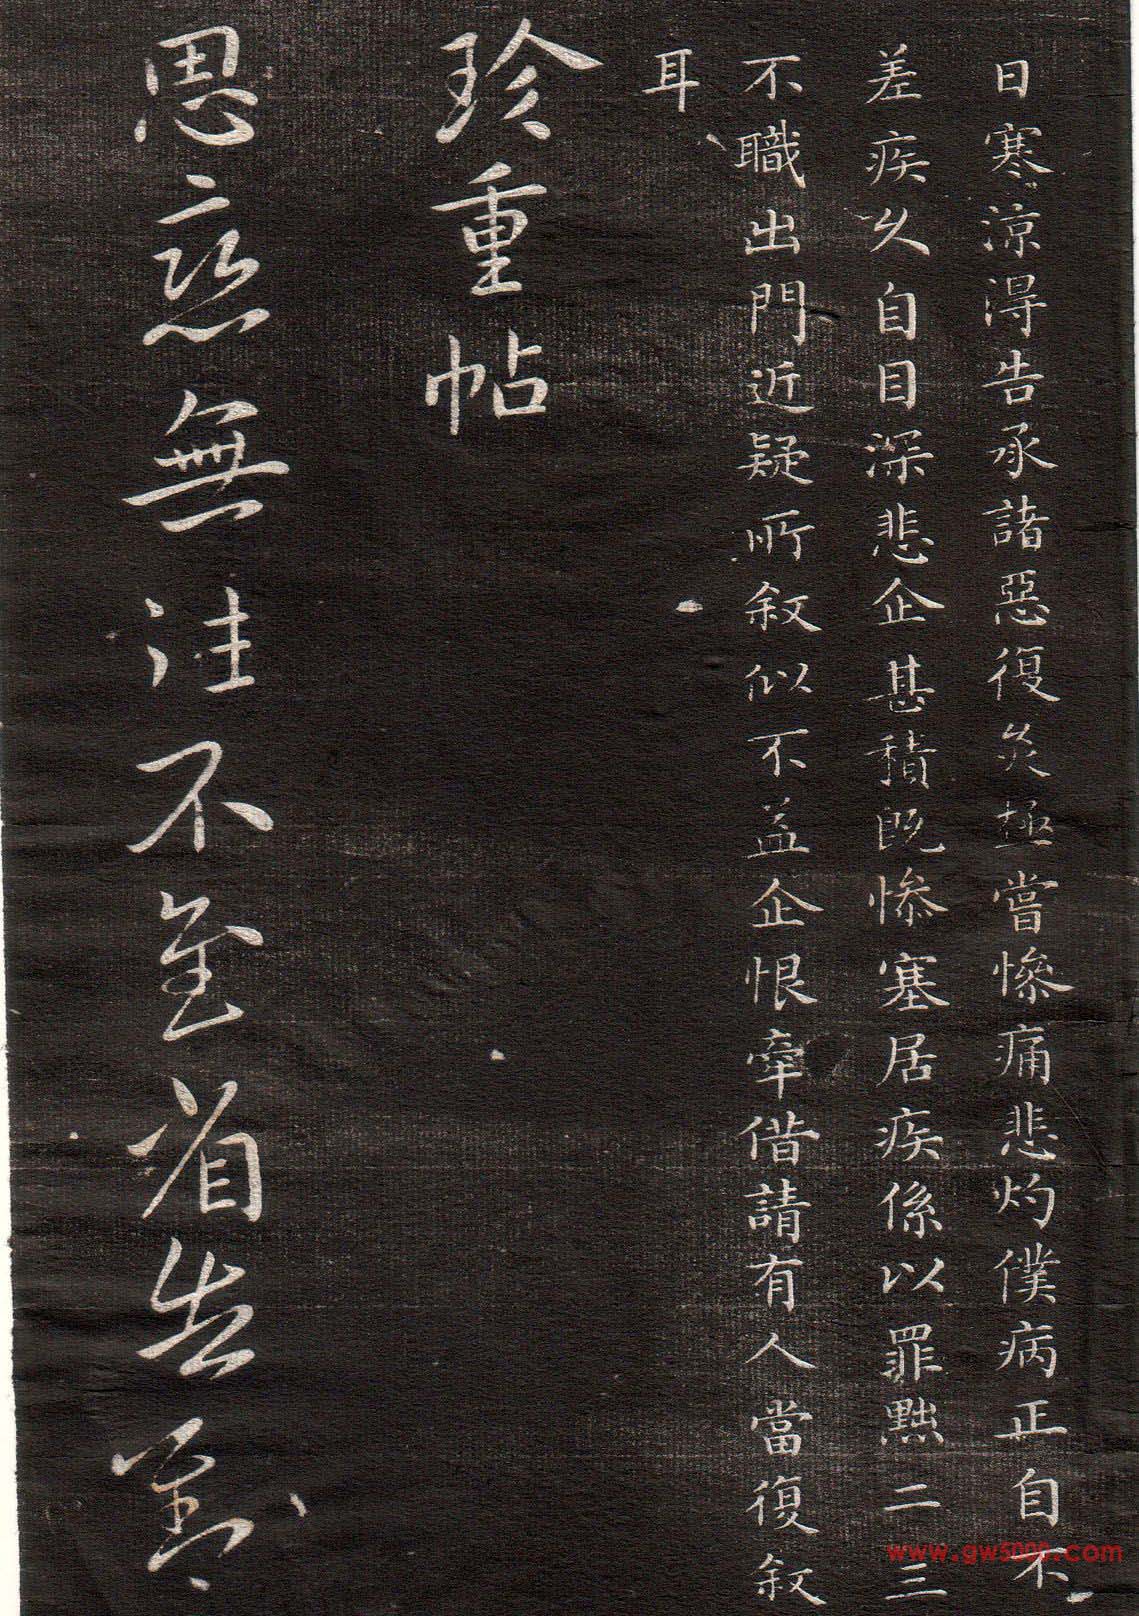 日寒涼得告承諸惡復灸極嘗慘痛悲灼僕病正自不
差疾久自目深悲企甚積既慘塞居疾係以罪黜二三
不職出門近疑所叙似不益企恨牽借請有人當復叙
耳
珍重帖
思戀無往不至省告對
www.gw5000.com